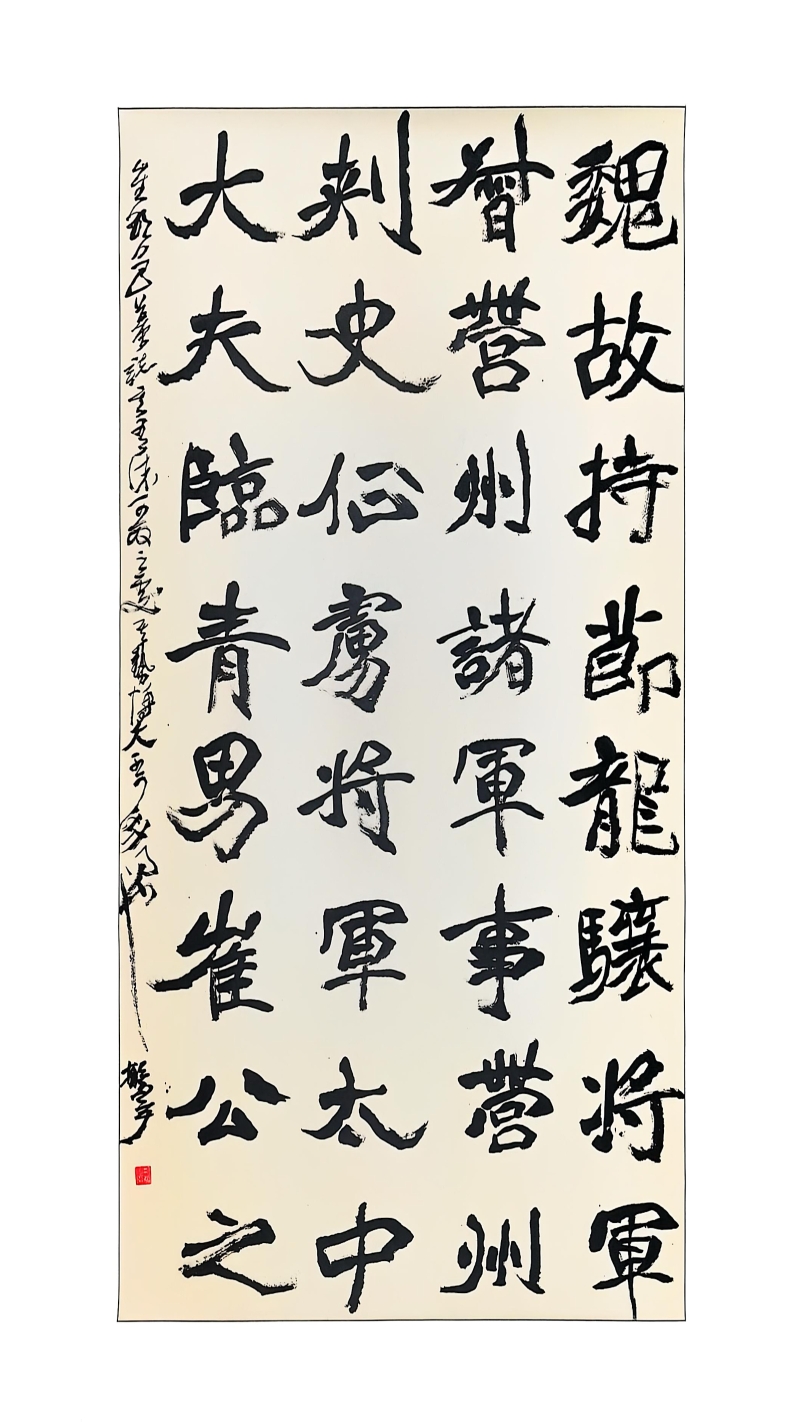 魏故持節龍驤將軍
督營州諸軍事營州
刺史征虜將軍太中
大夫臨青男崔公之
崔敬邕墓誌
博大